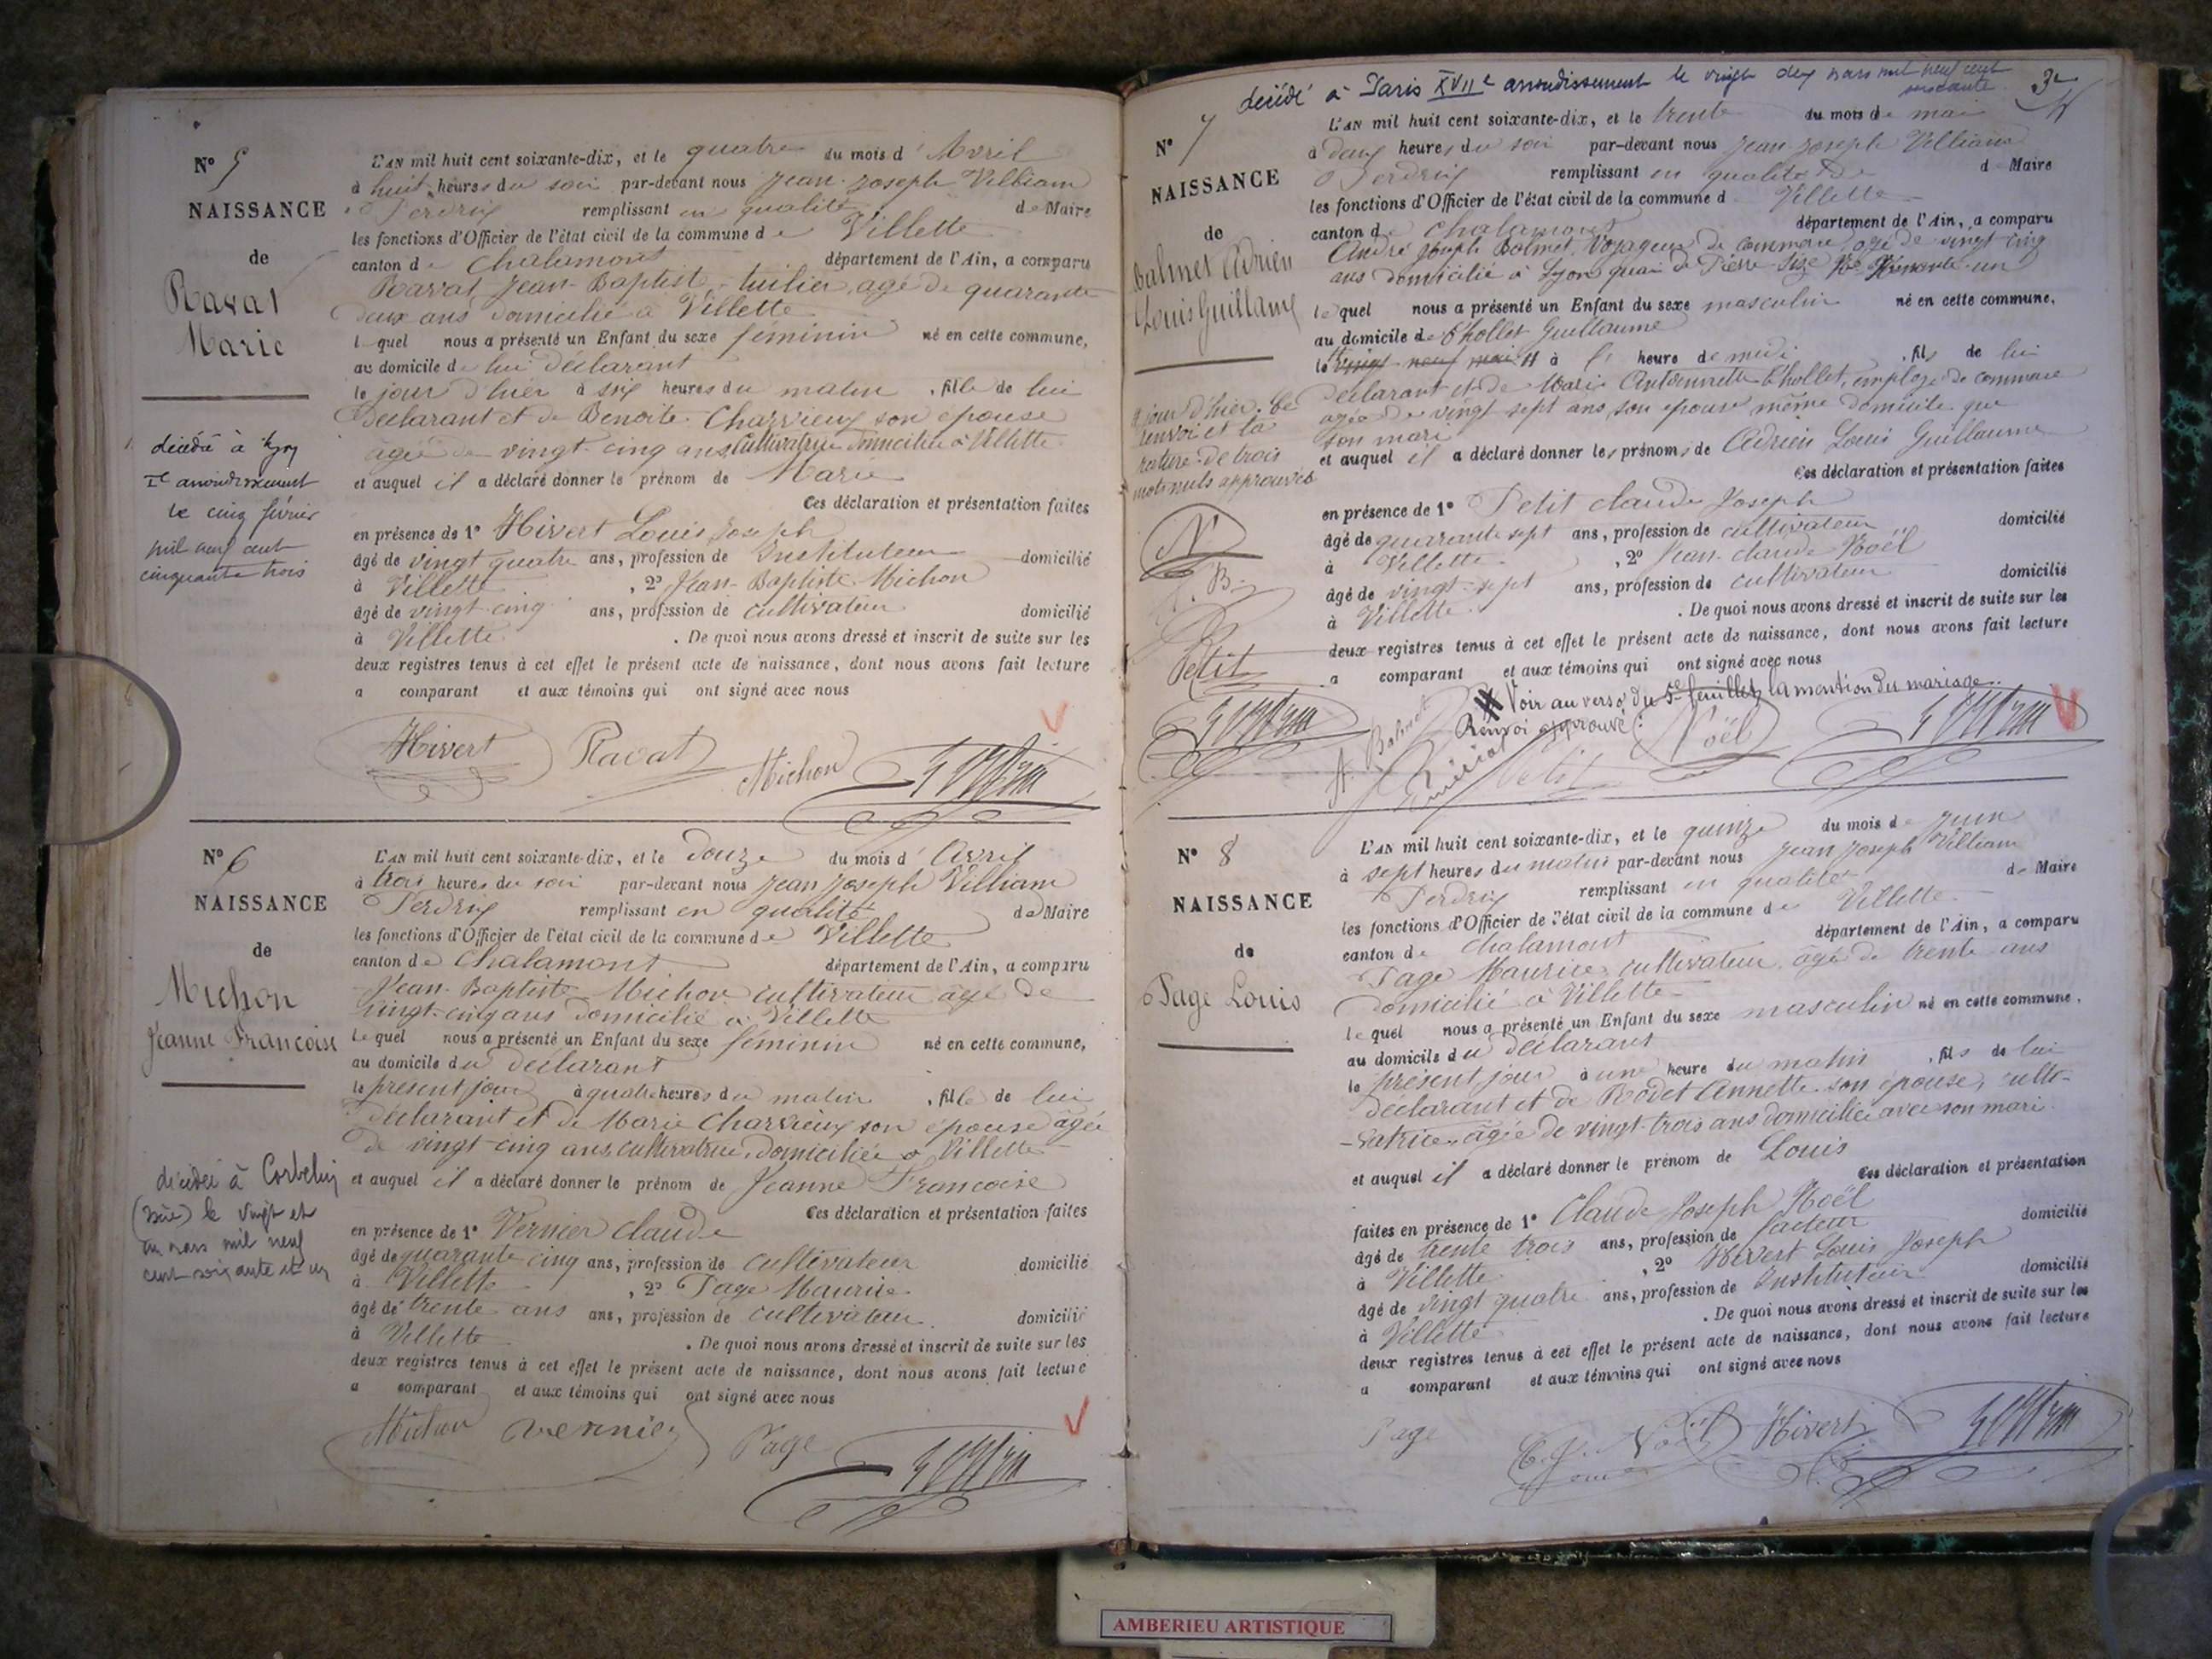 N° 5
NAISSANCE
de
Ravat
Marie
décédée à Lyon
Ie arrondissement
le cinq février
mil neuf cent
cinquante trois
L'AN mil huit cent soixante-dix, et le quatre du mois d' Avril
à huit heures du soir par-devant nous Jean Joseph Villiam
Perdrix remplissant en qualité de Maire
les fonctions d'Officier de l'état civil de la commune de Villette
canton de Chalamont département de l'Ain, a comparu
Ravat Jean-Baptist, tuilier, agé de quarante
deux ans domicilié à Villette
lequel nous a présenté un Enfant du sexe féminin né en cette commune,
au domicile de lui déclarant
le jour d'hier à six heures du matin, fille de lui
déclarant et de Benoite Charvieux son épouse
agée de vingt-cinq ans cultivatrice domiciliée à Villette
et auquel il a déclaré donner le prénom de Marie
Ces déclaration et présentation faites
en présence de 1° Hivert Louis Joseph
âgé de vingt quatre ans, profession de Instituteur domicilié
à Villette, 2° Jean-Baptiste Michon
âgé de vingt-cinq ans, profession de cultivateur domicilié
à Villette. De quoi nous avons dressé et inscrit de suite sur les
deux registres tenus à cet effet le présent acte de naissance, dont nous avons fait lecture
a comparant et aux témoins qui ont signé avec nous
Hivert Ravat Michon
N° 6
NAISSANCE
de
Michon
Jeanne Francoise
décédée à Corbelin
le vingt et
un mars mil neuf
cent soixante et un
L'AN mil huit cent soixante-dix, et le douze du mois d' Avril
à trois heures du soir par-devant nous Jean Joseph Villiam
Perdrix remplissant en qualité de Maire
les fonctions d'Officier de l'état civil de la commune de Villette
canton de Chalamont département de l'Ain, a comparu
Jean-Baptiste Michon cultivateur âgé de
vingt-cinq ans domicilié à Villette
lequel nous a présenté un Enfant du sexe féminin né en cette commune,
au domicile du déclarant
le présent jour à quatre heures du matin, fille de lui
déclarant et de Marie Charvieux son épouse âgée
de vingt-cinq ans, cultivatrice, domiciliée à Villette
et auquel il a déclaré donner le prénom de Jeanne Francoise
Ces déclaration et présentation faites
en présence de 1° Vernier Claude
âgé de quarante cinq ans, profession de cultivateur domicilié
à Villette, 2° Page Maurice
âgé de trente ans ans, profession de cultivateur domicilié
à Villette. De quoi nous avons dressé et inscrit de suite sur les
deux registres tenus à cet effet le présent acte de naissance, dont nous avons fait lecture
a comparant et aux témoins qui ont signé avec nous
Michon Vernier Page
décédé à Paris XVIIe arrondissement le vingt deux mars mil neuf cent
soixante
3
N° 7
NAISSANCE
de
Balmet Adrien
Louis Guillaume
le jour d'hier. Ce
renvoi et la
rature de trois
mots nuls approuvés
N
A. B.
Petit
L'AN mil huit cent soixante-dix, et le trente du mois de mai
à deux heures du soir par-devant nous Jean Joseph Villiam
Perdrix remplissant en qualité de de Maire
les fonctions d'Officier de l'état civil de la commune d Villette
canton de Chalamont département de l'Ain, a comparu
André Joseph Balmet, voyageur de commerce agé de vingt cinq
ans domicilié à Lyon quai de Pierre-Size
lequel nous a présenté un Enfant du sexe masculin né en cette commune,
au domicile de Chollet Guillaume
le vingt neuf mai à l' heure de midi, fils de lui
déclarant et de Marie Antoinette Chollet, employé de commerce
agée de vingt sept ans, son épouse même domicile que
son mari
et auquel il a déclaré donner les prénoms de Adrien Louis Guillaume
Ces déclaration et présentation faites
en présence de 1° Petit Claude Joseph
âgé de quarante sept ans, profession de cultivateur domicilié
à Villette, 2° Jean Claude Noël
âgé de vingt-sept ans, profession de cultivateur domicilié
à Villette. De quoi nous avons dressé et inscrit de suite sur les
deux registres tenus à cet effet le présent acte de naissance, dont nous avons fait lecture
a comparant et aux témoins qui ont signé avec nous
Voir au verso du 5e feuillet la mention du mariage.
Renvoi approuvé:
A. Balmet Petit Noël
N° 8
NAISSANCE
de
Page Louis
L'AN mil huit cent soixante-dix, et le quinze du mois de Juin
à sept heures du matin par-devant nous Jean Joseph Villiam
Perdrix remplissant en qualité de Maire
les fonctions d'Officier de l'état civil de la commune de Villette
canton de Chalamont département de l'Ain, a comparu
Page Maurice cultivateur âgé de trente ans
domicilié à Villette
lequel nous a présenté un Enfant du sexe masculin né en cette commune,
au domicile du déclarant
le présent jour à une heure du matin, fils de lui
déclarant et de Rodet Annette son épouse, culti-
-vatrice, âgée de vingt-trois ans domiciliée avec son mari
et auquel il a déclaré donner le prénom de Louis
Ces déclaration et présentation
faites en présence de 1° Claude Joseph Noël
âgé de trente trois ans, profession de facteur domicilié
à Villette, 2° Hivert Louis Joseph
âgé de vingt quatre ans, profession de Instituteur domicilié
à Villette. De quoi nous avons dressé et inscrit de suite sur les
deux registres tenus à cet effet le présent acte de naissance, dont nous avons fait lecture
a comparant et aux témoins qui ont signé avec nous
Page C. J. Noël Hivert
AMBERIEU ARTISTIQUE